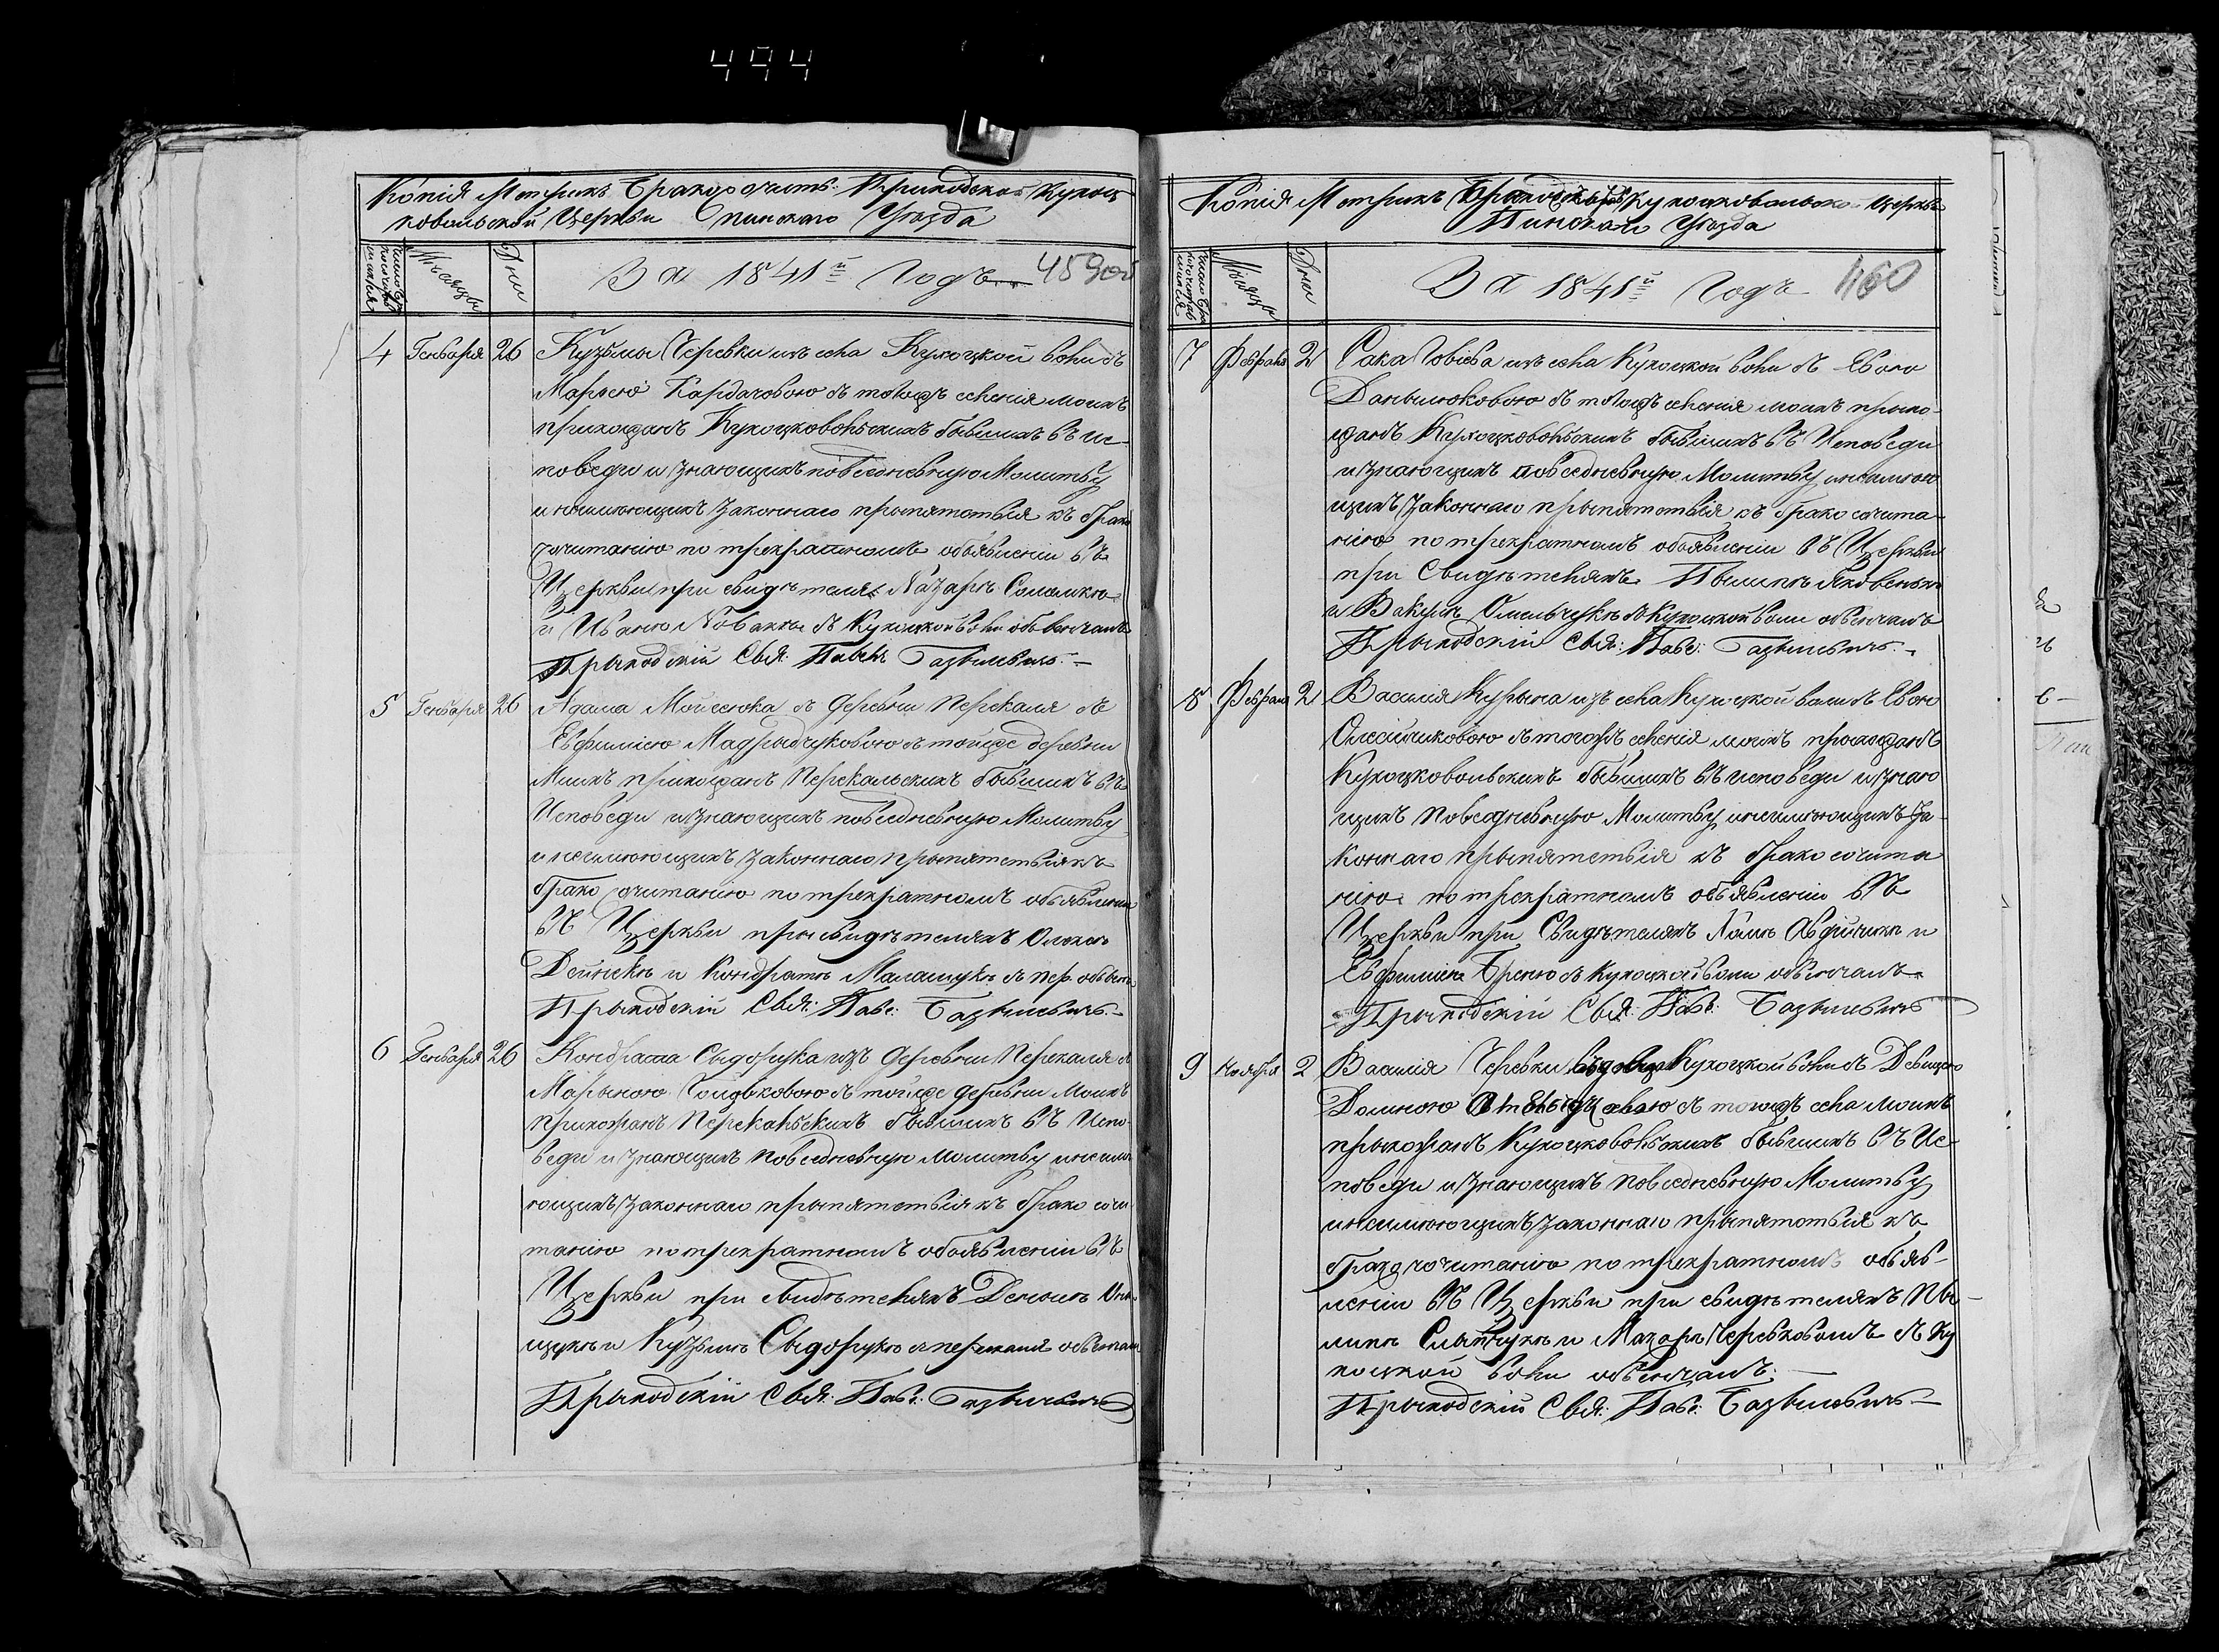 494
Копія Метрикъ Бракосочетъ: Приходской Кухоц
ковольской Церкви Пинскаго Уѣзда
Мѣсяцы
Дни
За 1841й Годъ
459
4 Генваря 26 Кузьмы Черевки изъ села Кухоцкой Воли съ
Марьею Кардачовою съ тогожъ селенія моихъ
прихожанъ Кухоцковольскихъ бывшихъ въ Ис-
поведи и знающихъ повседневную Молитву
и неимеющихъ законнаго прыпятствія къ брако
сочитанію по трекратномъ объявленіи въ
Церкви при свидѣтеляхъ Лазарѣ
и Ивану съ Кухоцкой Воли обвенчалъ
Прыходскій Свя: Павелъ Базылевичъ. –
5 Генваря 26 Адама Мойсеюка съ деревни Перекаля съ
Евфиміею Мадрыдчуковою съ тойже деревни
Моихъ прихожанъ Перекальскихъ бывшихъ въ
Исповеди и знающихъ повседневную Молитву
и неимеющихъ законнаго прыпятствія къ
брако сочитанію по трекратномъ объявленіи
въ Церкви при свидѣтеляхъ
Дейнекѣ и Кондратѣ Малащукѣ съ Пер. обвенч
Прыходскій Свя: Паве: Базылевичъ. –
6 Генваря 26 Кондрата Сыдорука изъ деревни Перекаля съ
Марыною съ тойже деревни Моихъ
Прихожанъ Перекальскихъ бывшихъ въ Испо
веди и знающихъ повседневную Молитву и неиме
ющихъ законнаго прыпятствія къ брако сочи
танію по трекратномъ объявленіи въ
Церкви при свидѣтеляхъ
и Кузьмѣ Сыдорукѣ съ Перекаля обвенчалъ
Прыходскій Свя: Паве: Базылевичъ
Копія Метрикъ Кухоцковольской Церкви
Пинскаго Уѣзда
Мѣсяцы
Дни
За 1841й Годъ
460
7 Февраля 2 Сака изъ села Кухоцкой Воли съ Евою
Данылюковою съ тогожъ селенія моихъ прыхо-
жанъ Кухоцковольскихъ бывшихъ въ Исповеди
и знающихъ повседневную Молитву и неимею
щихъ законнаго прыпятствія къ брако сочита-
нію по трекратномъ объявленіи въ Церкви
при Свидѣтеляхъ
и Вакулѣ Омельчукѣ съ Кухоцкой Воли обвенчалъ
Прыходскій Свя: Паве: Базылевичъ. –
8 Февраля 2 Василія Курыла изъ села Кухоцкой Воли съ Евою
Олесійчиковою съ тогожъ селенія моихъ прихожанъ
Кухоцковольскихъ бывшихъ въ исповеди и знаю
щихъ повседневную Молитву и неимеющихъ за-
коннаго прыпятствія къ брако сочита
нію по трекратномъ объявленію въ
Церкви при Свидѣтеляхъ и
съ Кухоцкой Воли обвенчалъ
Прыходскій Свя: Паве: Базылевичъ
9 Ноября 2 Василія Черевки Кухоцкой Воли съ Девицею
Домною съ тогожъ села моихъ
прыхожанъ Кухоцковольскихъ бывшихъ въ Ис-
поведи и знающихъ повседневную Молитву
и неимеющихъ законнаго прыпятствія къ
брако сочитанію по трекратномъ объяв-
леніи въ Церкви при свидѣтеляхъ Пы-
липѣ и Макарѣ Черевковомъ съ Ку
хоцкой Воли обвенчалъ. –
Прыходскій Свя: Паве: Базылевичъ –